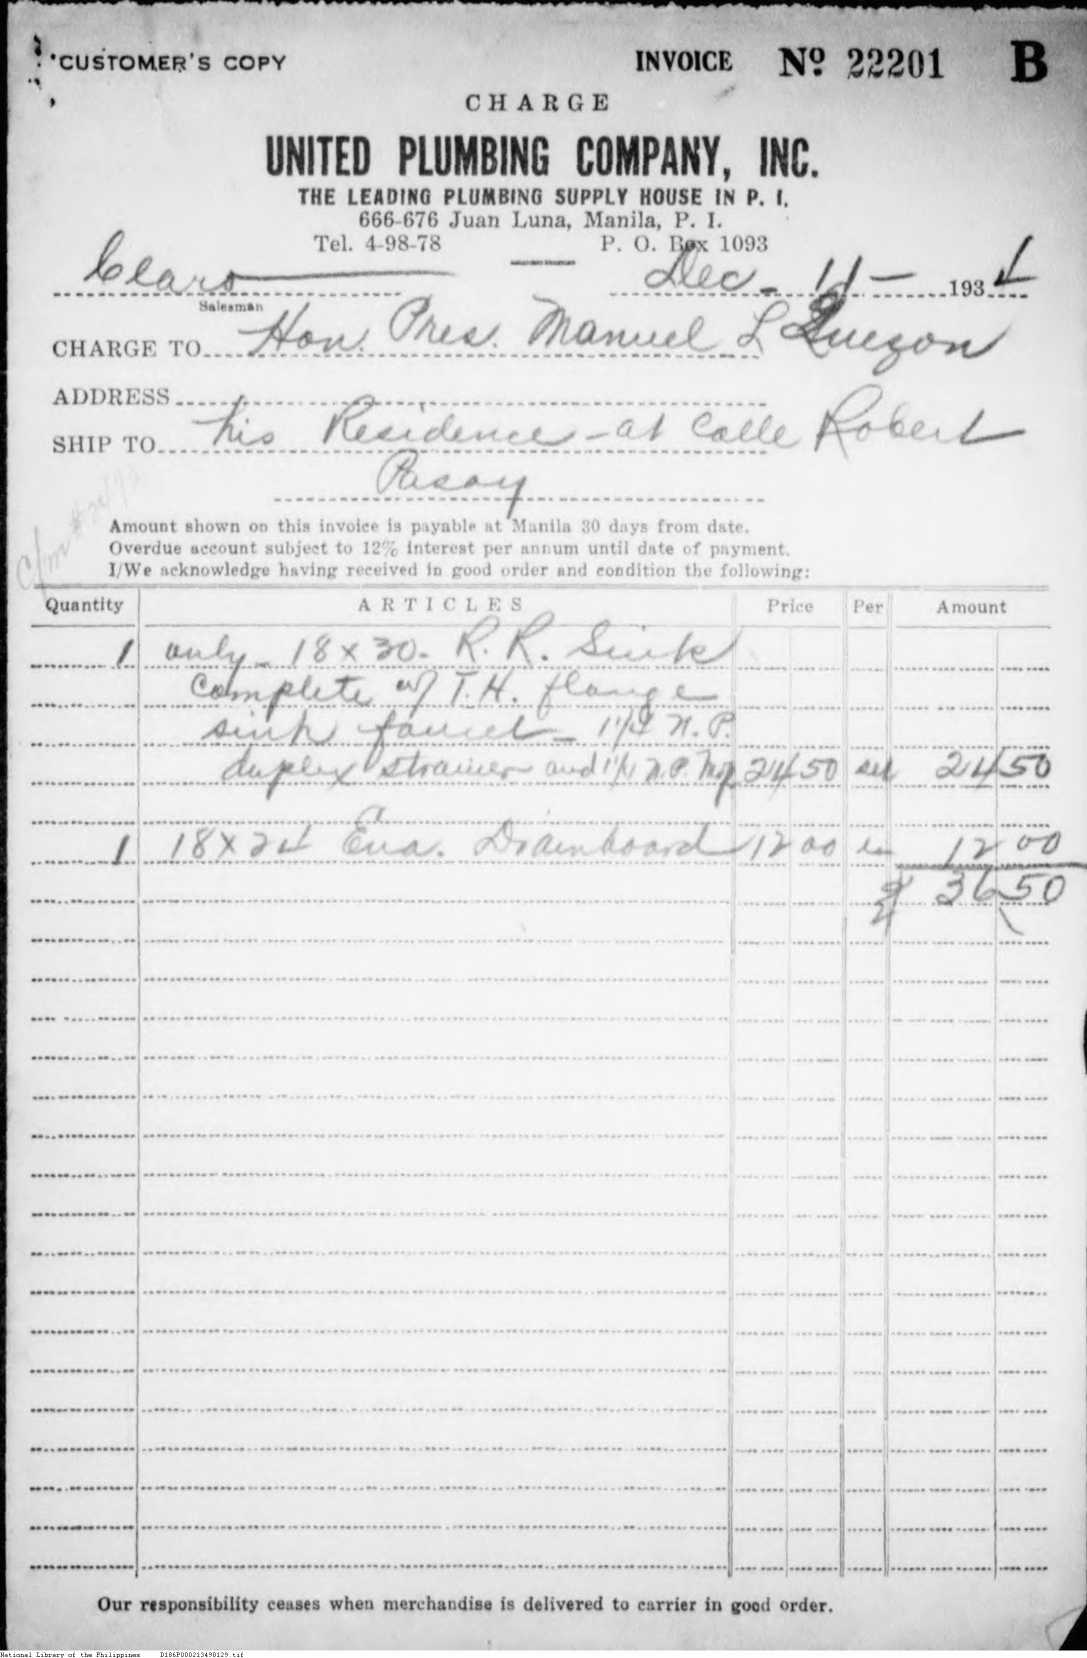 CUSTOMER'S COPY
INVOICE Nº 22201 B
CHARGE
UNITED PLUMBING COMPANY, INC.
THE LEADING PLUMBING SUPPLY HOUSE IN P. I.
666-676 Juan Luna, Manila, P. I.
Tel. 4-98-78 P. O. Box 1093
Claro Dec - 11 - 1934
Salesman
CHARGE TO Hon. Pres. Manuel L Quezon
ADDRESS
SHIP TO his Residence - at Calle Robert
Pasay
Amount shown on this invoice is payable at Manila 30 days from date.
Overdue account subject to 12% interest per annum until date of payment.
I/We acknowledge having received in good order and condition the following:
Quantity ARTICLES Price Per Amount
1 only - 18 x 30 - R. R. Sink
complete w/ T.H. flange
sink faucet - 1 1/4 N.P.
duplex strainer and 1 1/4 N.P. 24 50 set 24 50
1 18 x 24 Ena. Drainboard 12 00 ea 12 00
₱ 36 50
Our responsibility ceases when merchandise is delivered to carrier in good order.
National Library of the Philippines D186P000213498129.tif